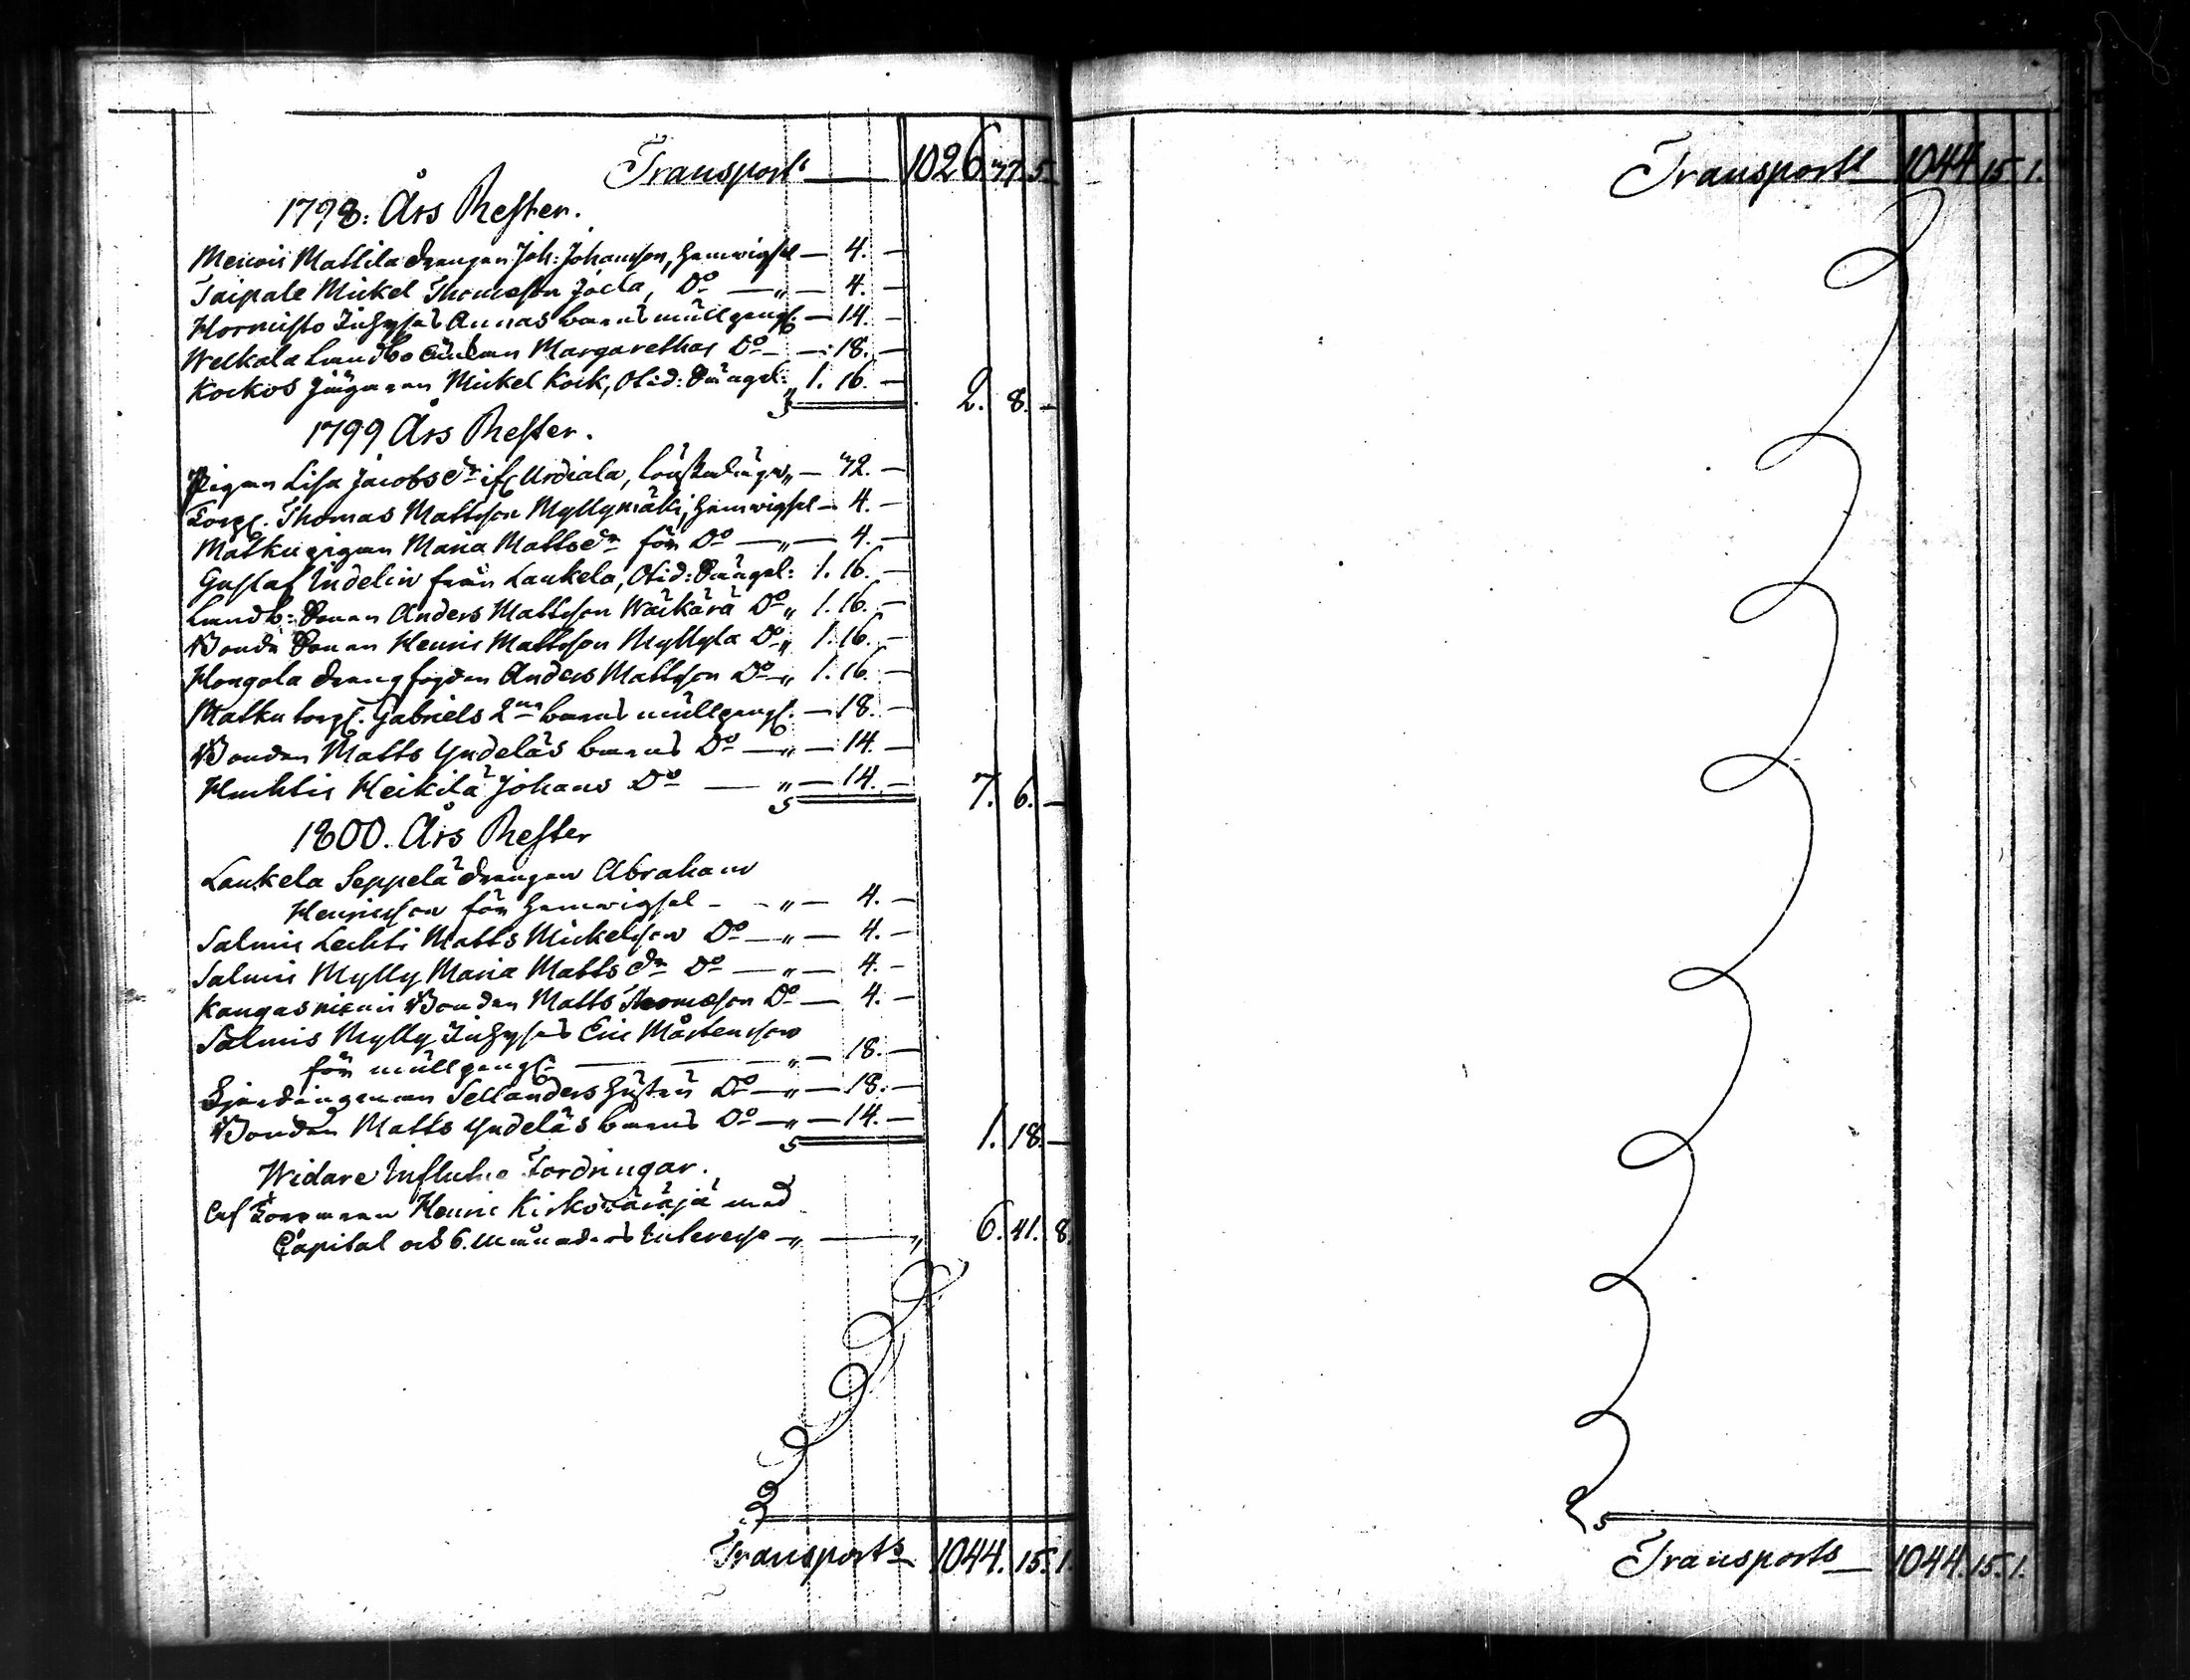 Transport 1026. 37. 5.
1798: Års Rester.
Menois Mattila drengen Joh: Johansson, hemwigsel — 4. —
Taipale Mickel Thomasson Jocla, Do — " — 4. —
Hornisto Inhyses Annas barns mullpengr. — 14. —
Welkala Landbo Enkan Margarethas Do — 18. —
Kockos Jägaren Mickel Kock, Otid: Sängel: 1. 16. —
2. 8. —
1799 Års Rester.
Pigan Lisa Jacobs dr ifr Urdiala, " — 32. —
Torp. Thomas Mattsson Myllymäki, hemwigsel — 4. —
Matku pigan Maria Matts dr för Do — " — 4. —
Gustaf Indelin från Laukela, Otid: Sängel: 1. 16. —
Landb: Sonen Anders Mattsson Wäikärä Do " 1. 16. —
Bonde Sonen Henric Mattsson Myllylä Do " 1. 16. —
Hongola drengfogden Anders Mattsson Do " 1. 16. —
Matku torp. Gabriels 2ne barns mullpengr. — 18. —
Bonden Matts Yndeläs barns Do — " — 14. —
Huhtis Heikilä Johans Do — " — 14. —
7. 6. —
1800. Års Rester
Laukela Seppelä drengen Abraham
Henricsson för hemwigsel - " — 4. —
Salmis Lechti Matts Mickelsson Do — " — 4. —
Salmis Mylly Maria Matts dr Do — " — 4. —
Kangasniemi Bonden Matts Thomasson Do — 4. —
Salmis Mylly Inhyses Eric Mårtensson
för mullpengr. — " — 18. —
Fjerdingsman Sellanders hustru Do — " — 18. —
Bonden Matts Yndeläs barns Do — " — 14. —
1. 18. —
Widare Influtne Fordringar.
Af Torparen Henric Kirkowäräjä med
Capital och 6. månaders Interesse — " — " 6. 41. 8.
Transport 1044. 15. 1.
Transport 1044. 15. 1.
Transports 1044. 15. 1.